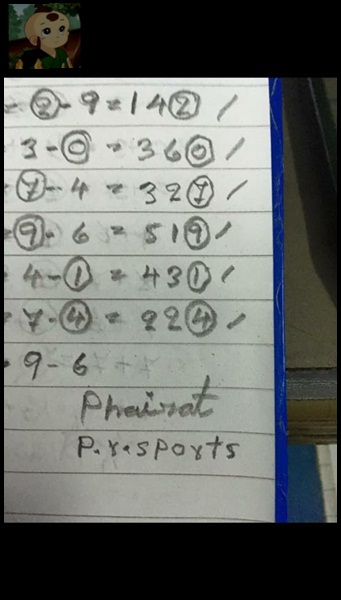 = 2 - 9 = 142 /
3 - 0 = 360 /
= 7 - 4 = 327 /
= 9 - 6 = 519 /
4 - 1 = 431 /
= 7 - 4 = 224 /
9 - 6
Phairat
P.r.sports